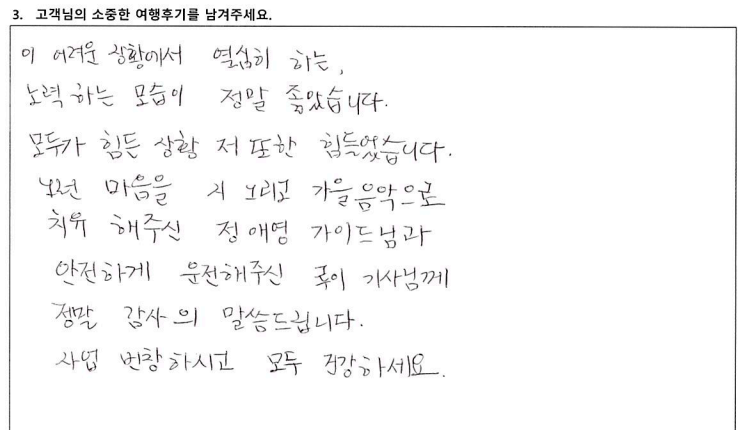 3. 고객님의 소중한 여행후기를 남겨주세요.
이 어려운 상황에서 열심히 하는,
노력 하는 모습이 정말 좋았습니다.
모두가 힘든 상황 저 또한 힘들었습니다.
마음을 가을음악으로
치유 해주신 정애영 가이드님과
안전하게 운전해주신 기사님께
정말 감사의 말씀드립니다.
사업 번창하시고 모두 건강하세요.